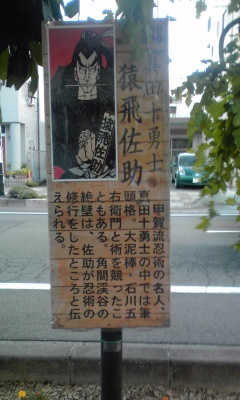 真田十勇士
猿飛佐助
甲賀流忍術の名人、
真田十勇士の中では筆
頭格。大泥棒・石川五
右衛門と術を競ったこ
ともある。角間渓谷の
絶壁は、佐助が忍術の
修行をしたところと伝
えられる。
猿飛佐助